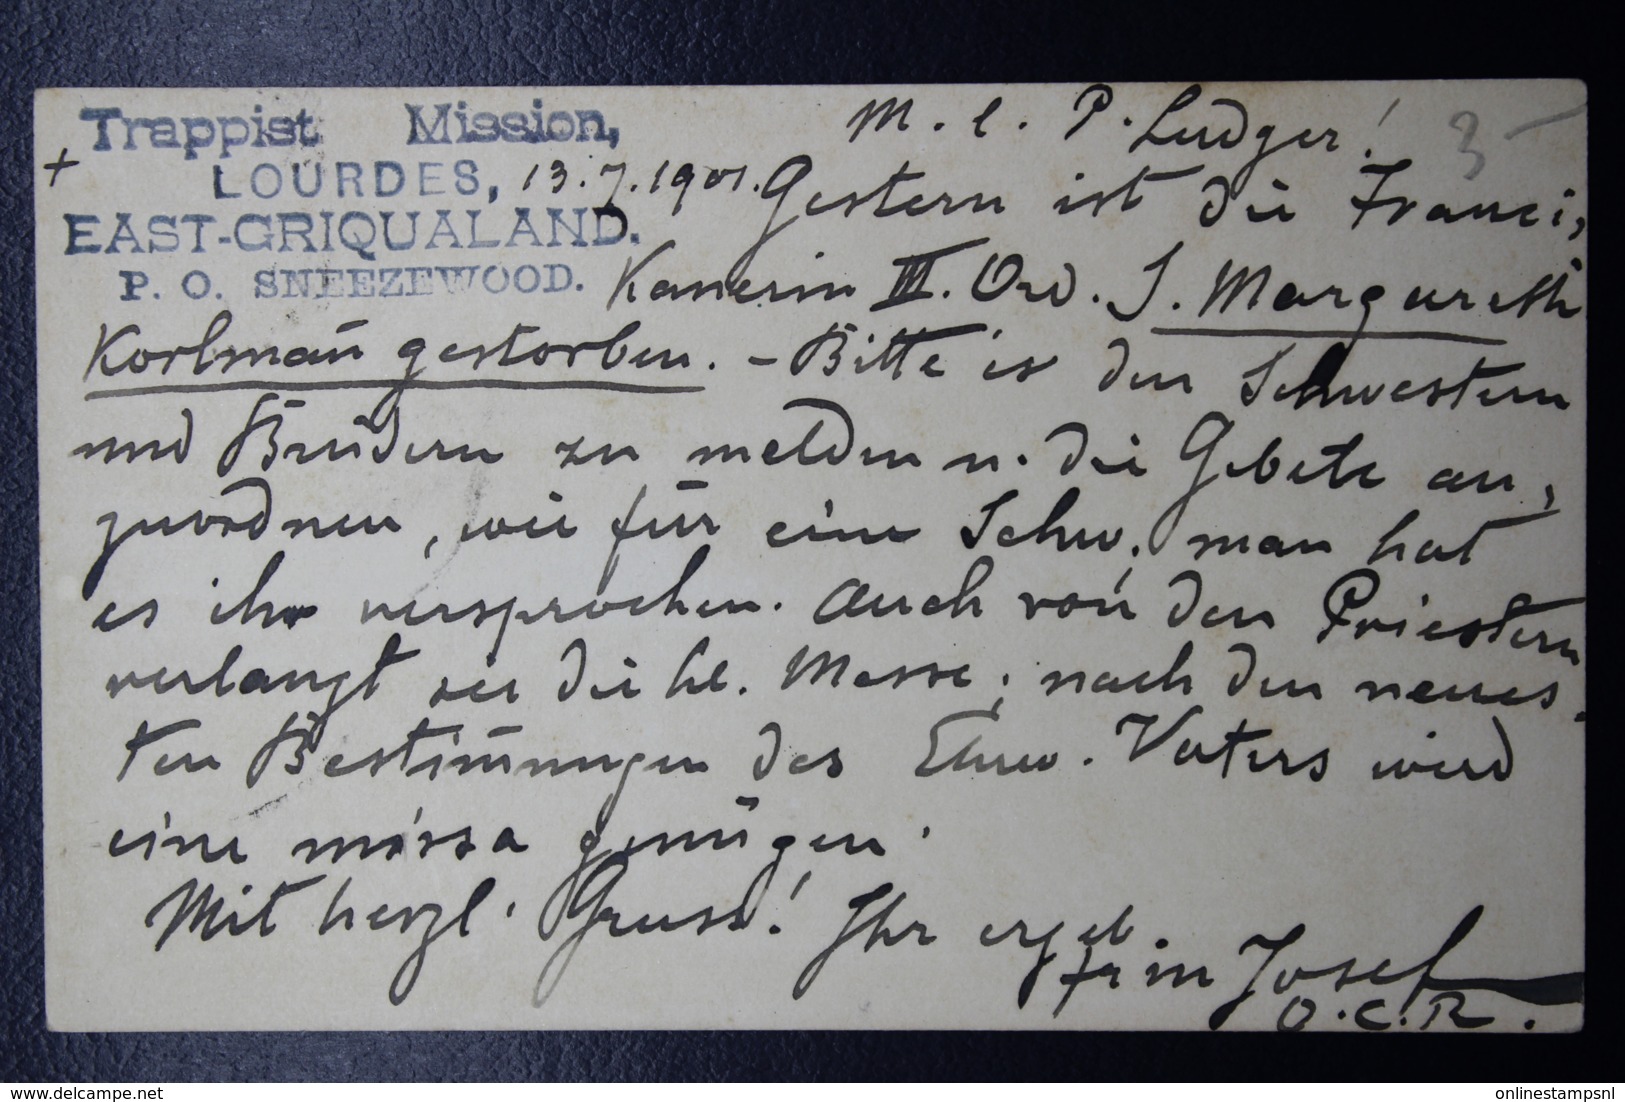 Trappist Mission,
+ LOURDES, 13.7.1901.
EAST-GRIQUALAND.
P. O. SNEEZEWOOD.
3 –
M. l. P. Ludger!
Gestern ist die Franci,
Kanerin III. Ord. S. Margareth
Korlmañ gestorben. – Bitte es den Schwestern
und Brüdern zu melden u. die Gebete an,
zuordnen, wie für eine Schw., man hat
es ihr versprochen. Auch von den Priestern
verlangt sie die hl. Messe; nach den neues-
ten Bestim̄ungen des Ehrw. Vaters wird
eine missa genügen.
Mit herzl. Gruss! Ihr ergeb.
Josef
O.C.R.
onlinestampsnl